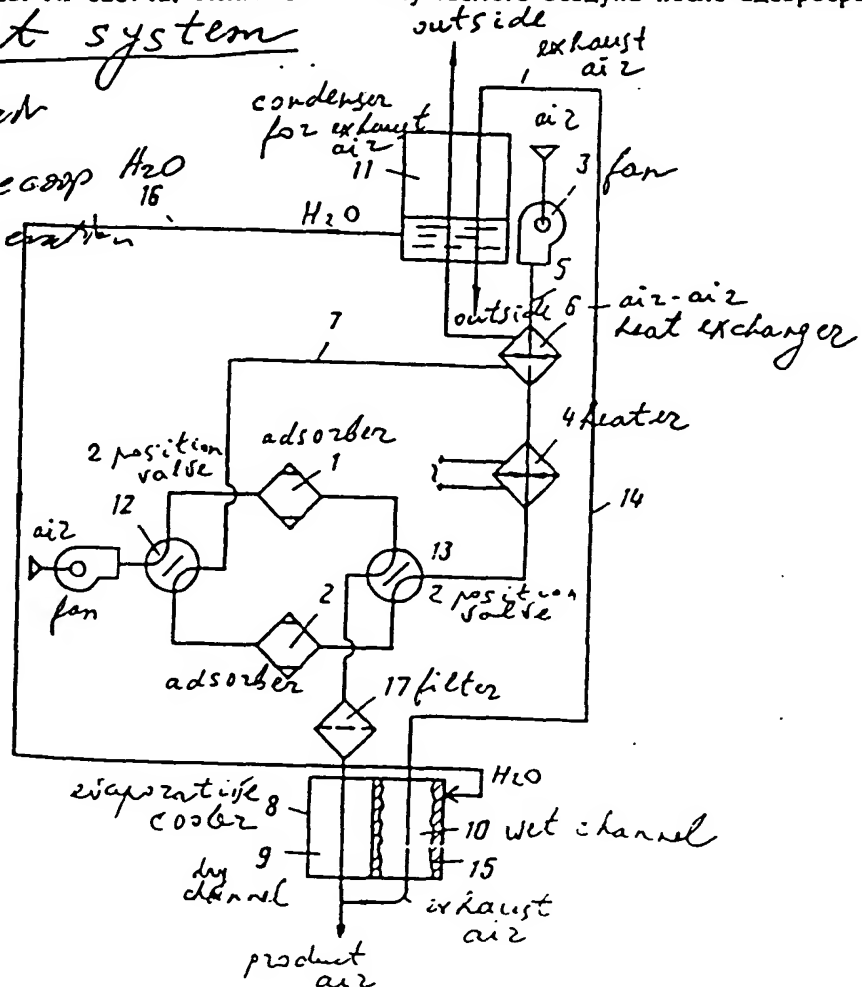 t system
outside
exhaust
air
condenser
for exhaust
air
11
air
3 fan
H2O
16
H2O
5
outside 6
air-air
heat exchanger
7
4 heater
adsorber
1
2 position
valve
12
14
air
fan
13
2 position
valve
2
adsorber
17 filter
H2O
evaporative
cooler
8
9
10 wet channel
15
dry
channel
exhaust
air
product
air